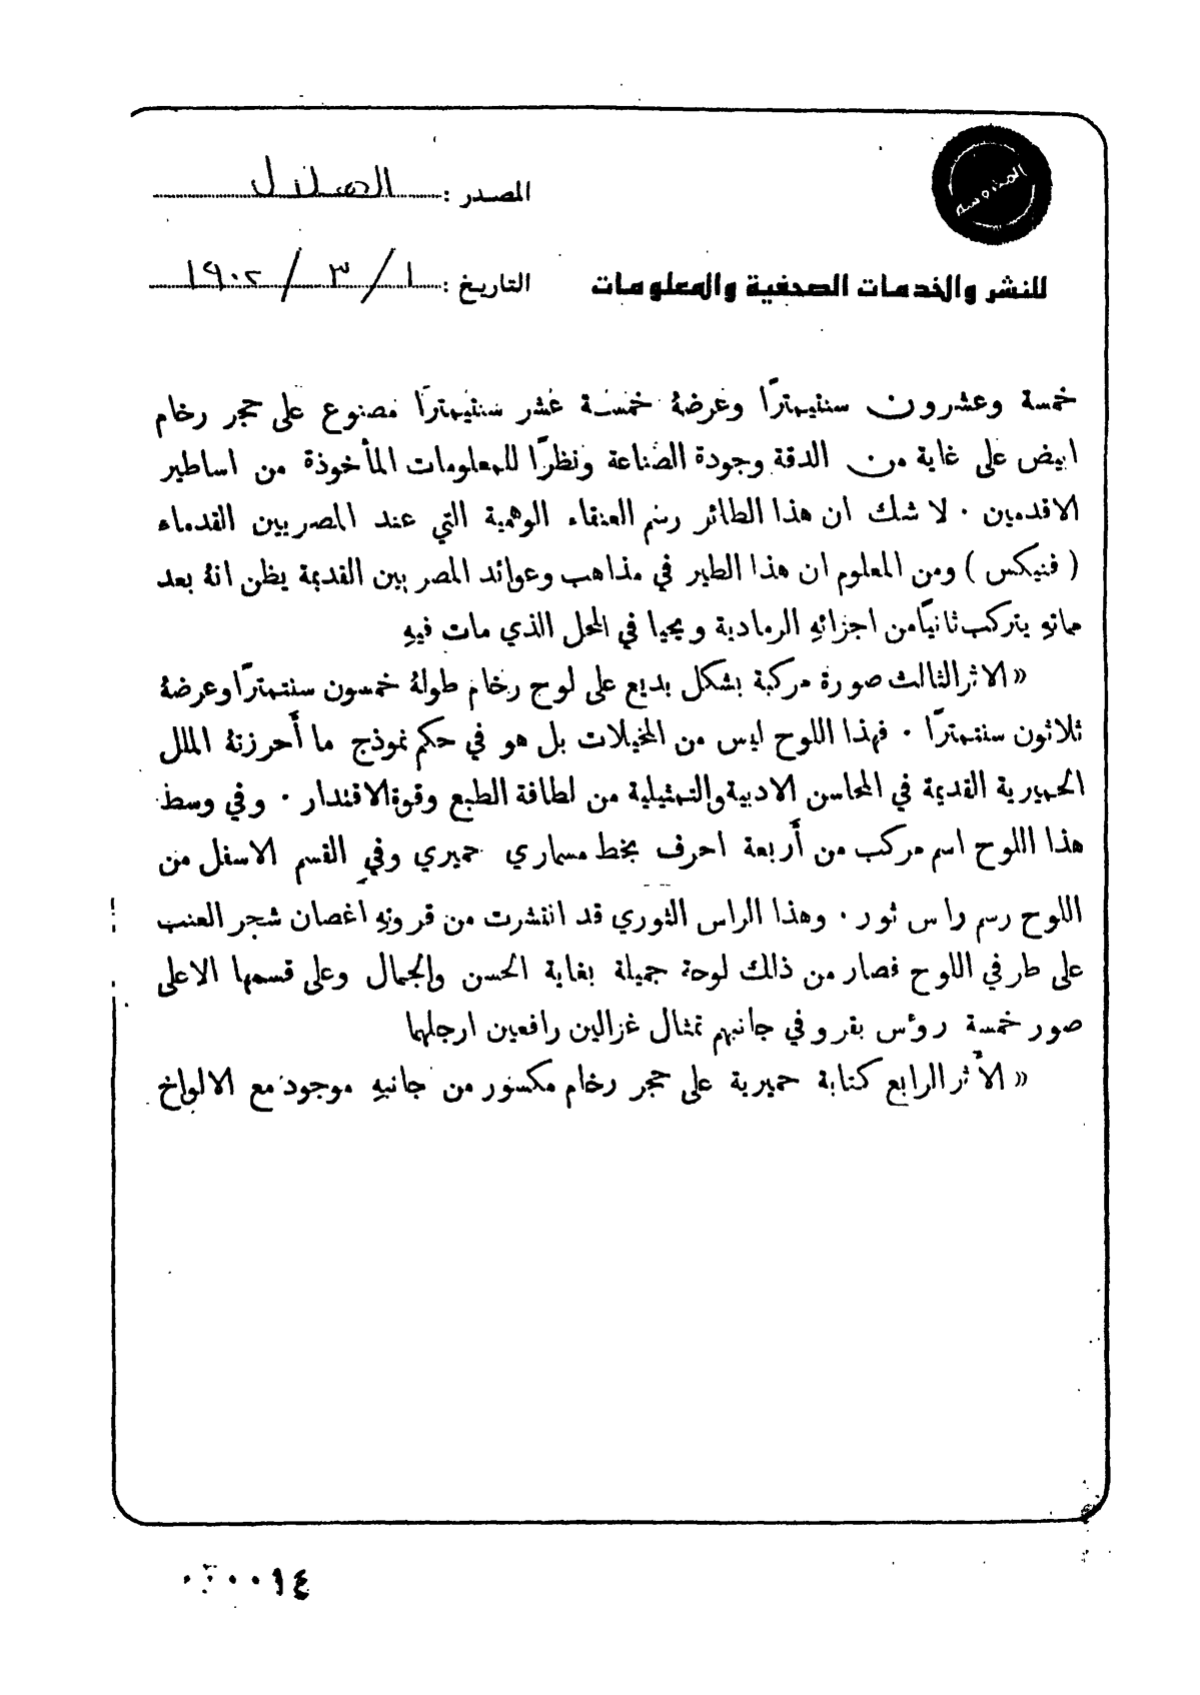 المصدر : الهلال
التاريخ : ١ / ٣ / ١٩٠٢
للنشر والخدمات الصحفية والمعلومات
خمسة وعشرون سنتيمترًا وعرضهُ خمسة عشر سنتيمترًا مصنوع على حجر رخام
ابيض على غاية من الدقة وجودة الصناعة ونظرًا للمعلومات المأخوذة من اساطير
الاقدمين ٠ لا شك ان هذا الطائر رسم العنقاء الوهمية التي عند المصريين القدماء
( فنيكس ) ومن المعلوم ان هذا الطير في مذاهب وعوائد المصريين القديمة يظن انهُ بعد
مماتهِ يتركب ثانيًا من اجزائهِ الرمادية ويحيا في المحل الذي مات فيهِ
« الاثر الثالث صورة مركبة بشكل بديع على لوح رخام طولهُ خمسون سنتمترًا وعرضهُ
ثلاثون سنتمترًا ٠ فهذا اللوح ليس من المخيلات بل هو في حكم نموذج ما أحرزتهُ الملل
الحميرية القديمة في المحاسن الادبية والتمثيلية من لطافة الطبع وقوة الاقتدار ٠ وفي وسط
هذا اللوح اسم مركب من أربعة احرف بخط مسماري حميري وفي القسم الاسفل من
اللوح رسم راس ثور ٠ وهذا الراس الثوري قد انتشرت من قرونهِ اغصان شجر العنب
على طرفي اللوح فصار من ذلك لوحة جميلة بغاية الحسن والجمال وعلى قسمها الاعلى
صور خمسة رؤس بقر وفي جانبهم تمثال غزالين رافعين ارجلهما
« الأثر الرابع كتابة حميرية على حجر رخام مكسور من جانبهِ موجود مع الالواح